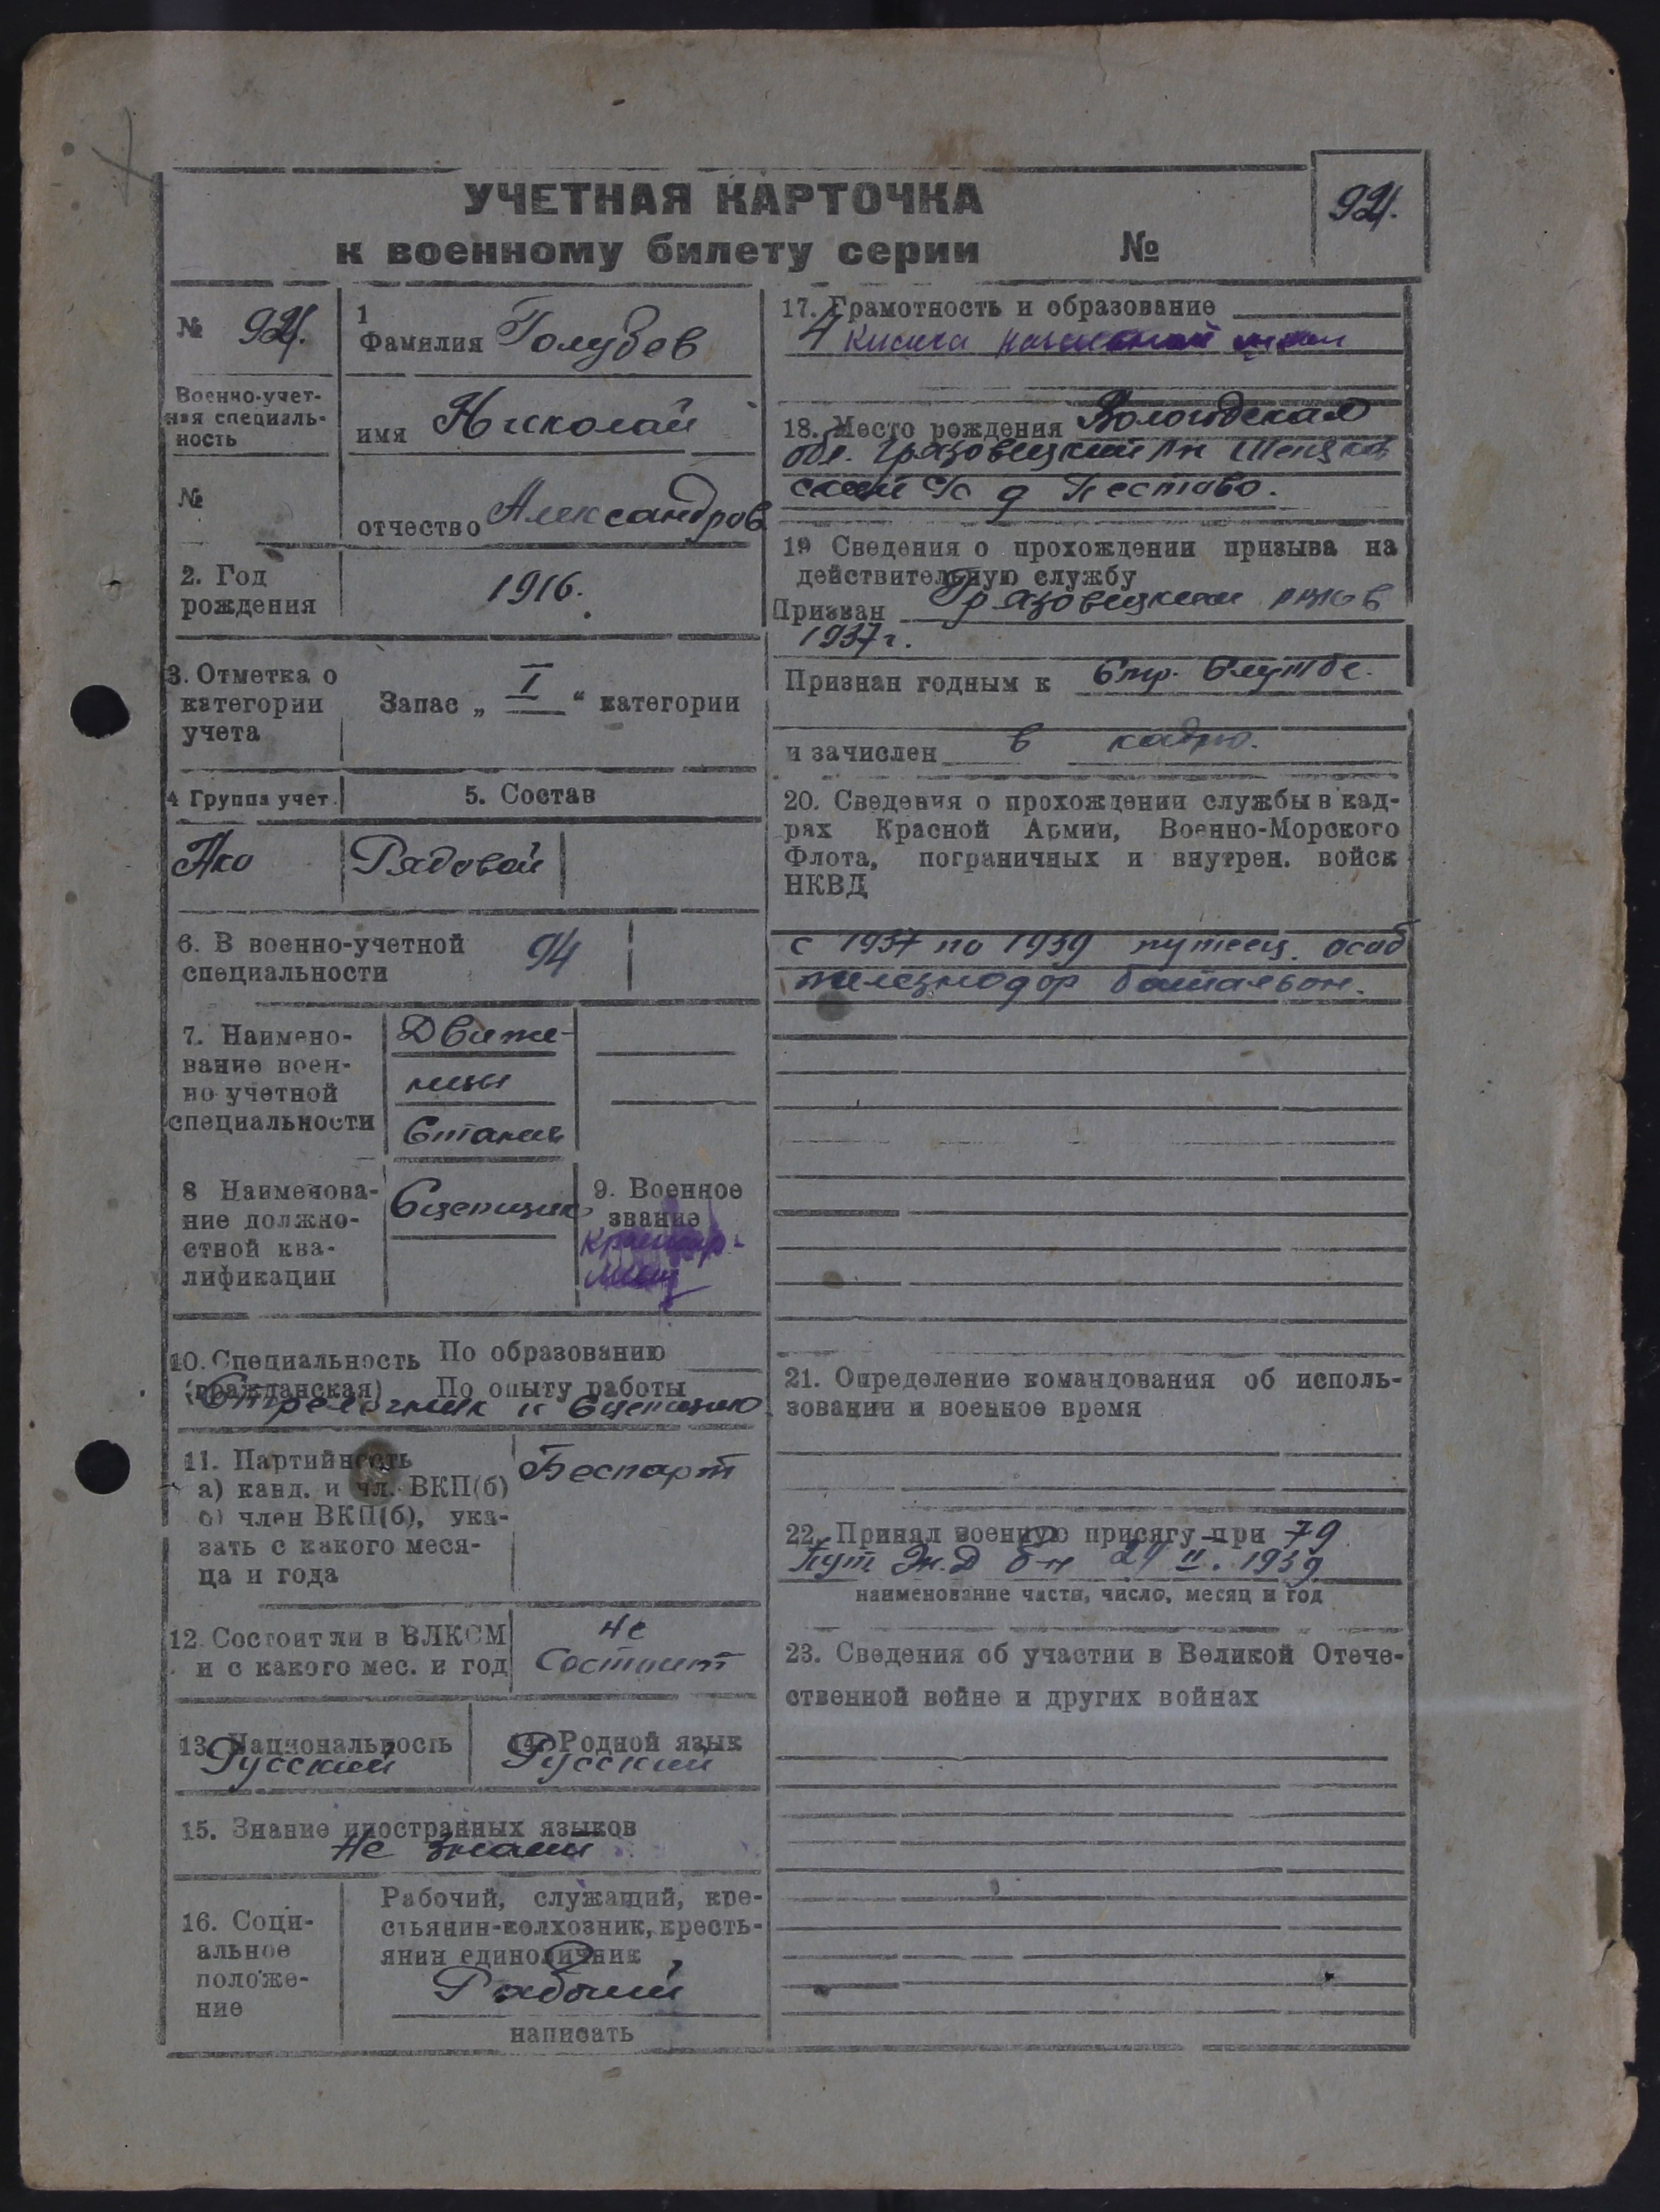 УЧЕТНАЯ КАРТОЧКА
к военному билету серии №
94.
№ 94.
Военно-учет-
ная специаль-
ность
№
1
Фамилия Голубев
имя Николай
отчество Александров
2. Год
рождения
1916.
3. Отметка о
категории
учета
Запас „ I “ категории
4 Группа учет.
5. Состав
Рядовой
6. В военно-учетной
специальности
94
7. Наимено-
вание воен-
но учетной
специальности
Движе-
ницы
Станций
8 Наименова-
ние должно-
стной ква-
лификации
Сцепщик
9. Военное
звание
Красноар-
меец
10. Специальность По образованию
(гражданская) По опыту работы
Стрелочник и Сцепщик
11. Партийность
а) канд. и чл. ВКП(б)
б) член ВКП(б), ука-
зать с какого меся-
ца и года
Беспарт
12. Состоит ли в ВЛКСМ
и с какого мес. и год
не
состоит
13. Национальность
Русский
14. Родной язык
Русский
15. Знание иностранных языков
Не знает
16. Соци-
альное
положе-
ние
Рабочий, служащий, кре-
стьянин-колхозник, кресть-
янин единоличник
Рабочий
написать
17. Грамотность и образование
4 класса начальной школ
18. Место рождения Вологодская
обл. Грязовецкий рн
ский с/с д Пестово.
19 Сведения о прохождении призыва на
действительную службу
Призван Грязовецким рвк в
1937 г.
Признан годным к Стр. Службе.
и зачислен в кадры.
20. Сведения о прохождении службы в кад-
рах Красной Армии, Военно-Морского
Флота, пограничных и внутрен. войск
НКВД
с 1937 по 1939 путеец. особ
железнодор батальон.
21. Определение командования об исполь-
зовании и военное время
22. Принял военную присягу при 79
Пут Ж.Д б-н 24 II. 1939
наименование части, число, месяц и год
23. Сведения об участии в Великой Отече-
ственной войне и других войнах